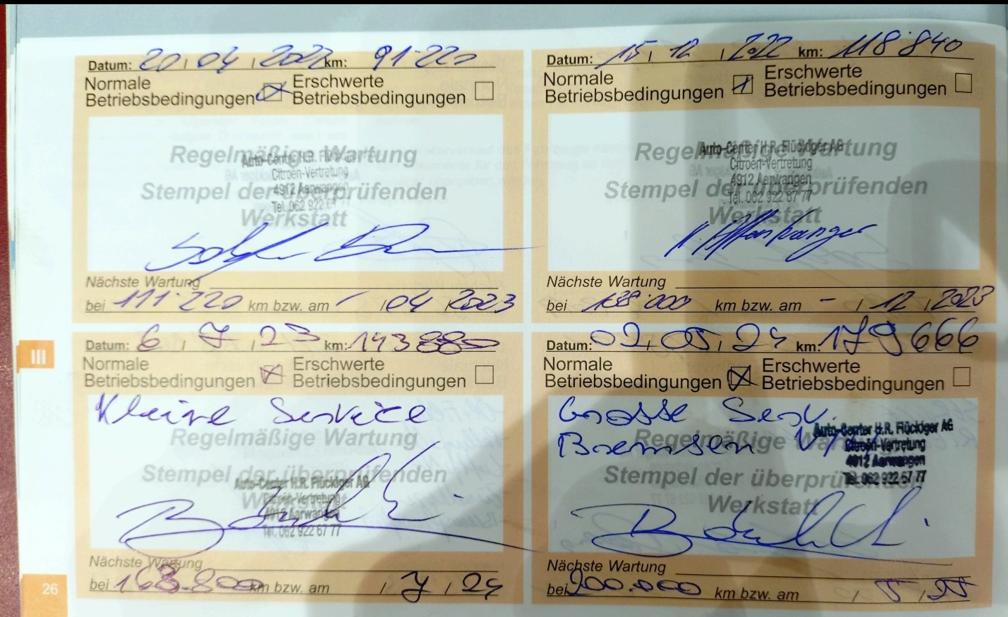 Datum: 20 04 2022 km: 91·220
Normale Betriebsbedingungen Erschwerte Betriebsbedingungen
Regelmäßige Wartung
Stempel der überprüfenden
Werkstatt
Auto-Center H.R. Flückiger AG
Citroën-Vertretung
4912 Aarwangen
Tel. 062 922
Nächste Wartung
bei 111·220 km bzw. am - 04 2023
Datum: 15 12 2022 km: 118 840
Normale Betriebsbedingungen Erschwerte Betriebsbedingungen
Regelmäßige Wartung
Stempel der überprüfenden
Werkstatt
Auto-Center H.R. Flückiger AG
Citroën-Vertretung
4912 Aarwangen
Tel. 062 922 67 77
Nächste Wartung
bei 138·000 km bzw. am - 12 2023
III
Datum: 6 7 23 km: 143880
Normale Betriebsbedingungen Erschwerte Betriebsbedingungen
Kleine Service
Regelmäßige Wartung
Stempel der überprüfenden
Werkstatt
Auto-Center H.R. Flückiger AG
Citroën-Vertretung
4912 Aarwangen
Tel. 062 922 67 77
Nächste Wartung
bei 168.800 km bzw. am 7 24
Datum: 02 05 24 km: 179666
Normale Betriebsbedingungen Erschwerte Betriebsbedingungen
Grosse Serv.
Bremsen
Regelmäßige Wartung
Stempel der überprüfenden
Werkstatt
Auto-Center H.R. Flückiger AG
Citroën-Vertretung
4912 Aarwangen
Tel. 062 922 67 77
Nächste Wartung
bei 200.000 km bzw. am
26